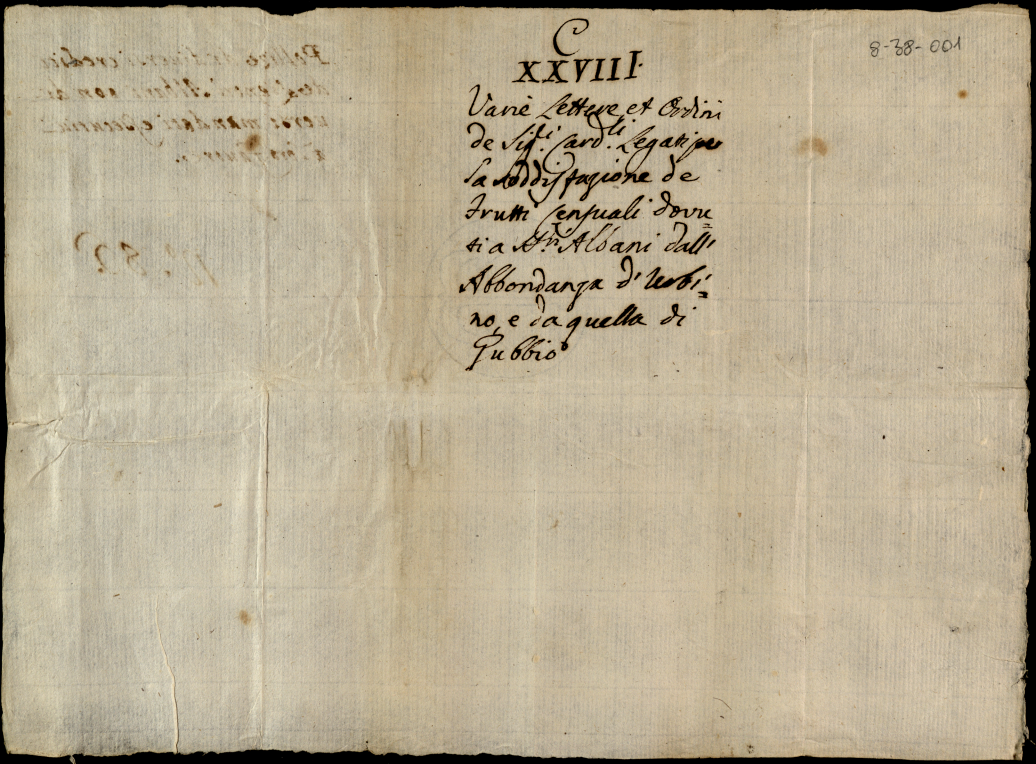 8-38-001
C
XXVIII.
Varie Lettere et Ordini
de Sig.li Card.li Legati per
la soddisfazione de
frutti Censuali dovu=
ti a S.ri Albani dall'
Abbondanza d'Urbi=
no, e da quella di
Gubbio